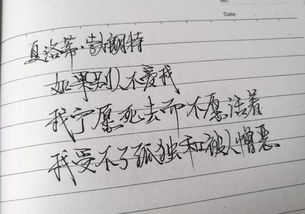 No.
Date
夏洛蒂·勃朗特
如果别人不爱我
我宁愿死去而不愿活着
我受不了孤独和被人憎恶